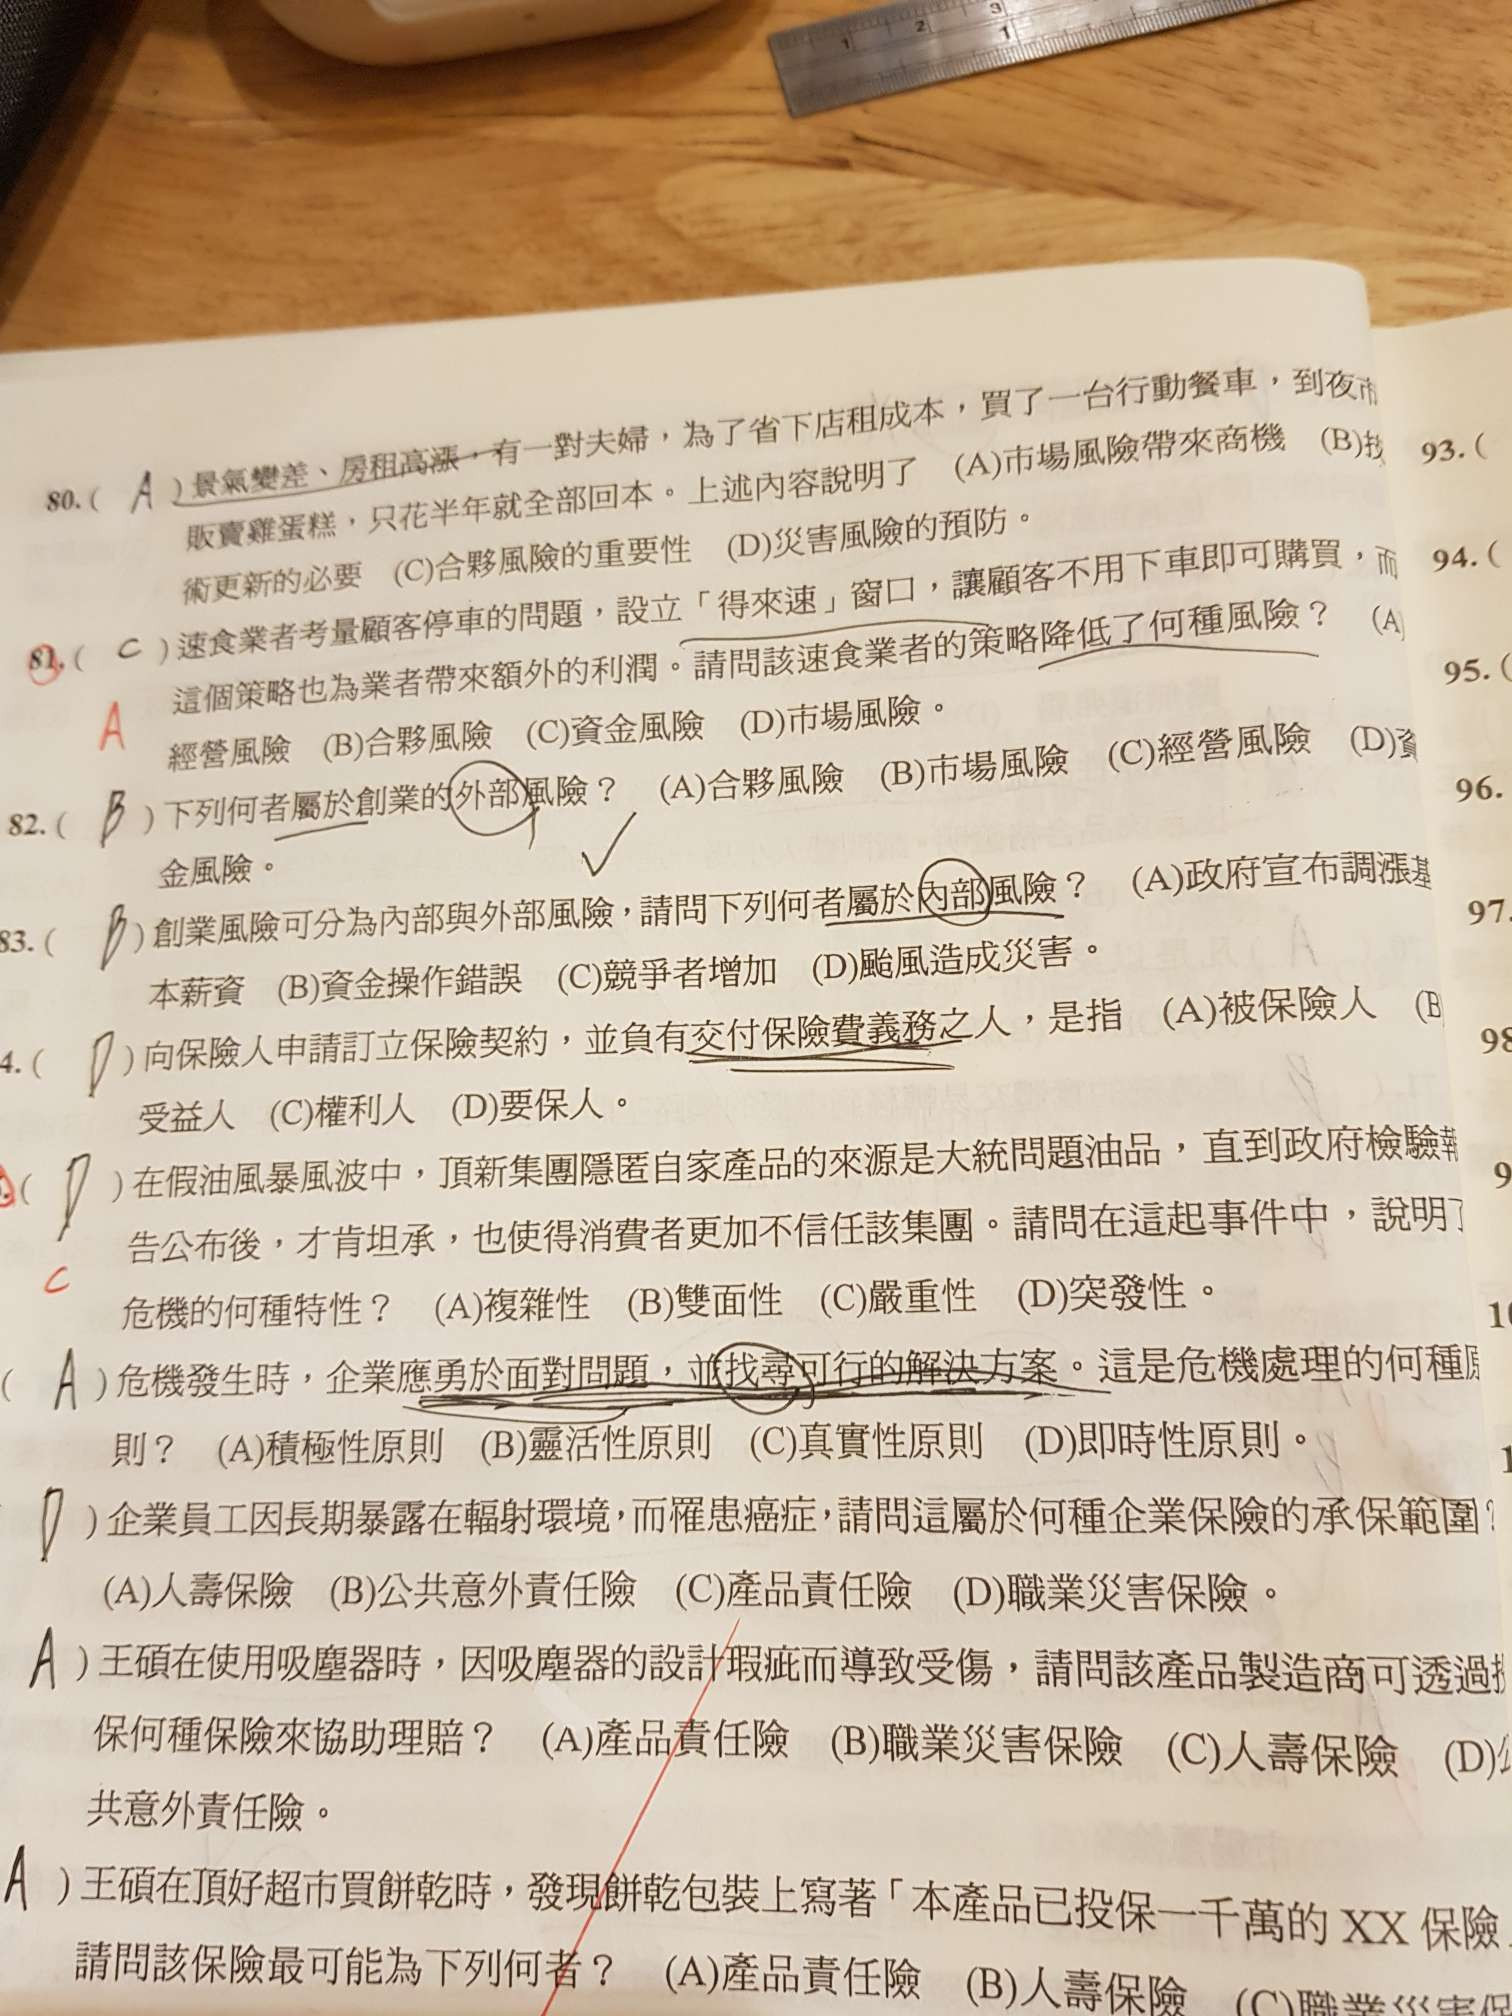 1 2 3
1
80.( A )景氣變差、房租高漲，有一對夫婦，為了省下店租成本，買了一台行動餐車，到夜市
販賣雞蛋糕，只花半年就全部回本。上述內容說明了 (A)市場風險帶來商機 (B)技
術更新的必要 (C)合夥風險的重要性 (D)災害風險的預防。
81.( C )速食業者考量顧客停車的問題，設立「得來速」窗口，讓顧客不用下車即可購買，而
這個策略也為業者帶來額外的利潤。請問該速食業者的策略降低了何種風險？ (A)
A
經營風險 (B)合夥風險 (C)資金風險 (D)市場風險。
82.( B )下列何者屬於創業的外部風險？ (A)合夥風險 (B)市場風險 (C)經營風險 (D)資
金風險。
83.( B )創業風險可分為內部與外部風險，請問下列何者屬於內部風險？ (A)政府宣布調漲基
本薪資 (B)資金操作錯誤 (C)競爭者增加 (D)颱風造成災害。
4.( D )向保險人申請訂立保險契約，並負有交付保險費義務之人，是指 (A)被保險人 (B
受益人 (C)權利人 (D)要保人。
( D )在假油風暴風波中，頂新集團隱匿自家產品的來源是大統問題油品，直到政府檢驗報
告公布後，才肯坦承，也使得消費者更加不信任該集團。請問在這起事件中，說明了
C
危機的何種特性？ (A)複雜性 (B)雙面性 (C)嚴重性 (D)突發性。
( A )危機發生時，企業應勇於面對問題，並找尋可行的解決方案。這是危機處理的何種原
則？ (A)積極性原則 (B)靈活性原則 (C)真實性原則 (D)即時性原則。
D )企業員工因長期暴露在輻射環境，而罹患癌症，請問這屬於何種企業保險的承保範圍？
(A)人壽保險 (B)公共意外責任險 (C)產品責任險 (D)職業災害保險。
A )王碩在使用吸塵器時，因吸塵器的設計瑕疵而導致受傷，請問該產品製造商可透過投
保何種保險來協助理賠？ (A)產品責任險 (B)職業災害保險 (C)人壽保險 (D)公
共意外責任險。
A )王碩在頂好超市買餅乾時，發現餅乾包裝上寫著「本產品已投保一千萬的 XX 保險」
請問該保險最可能為下列何者？ (A)產品責任險 (B)人壽保險 (C)職業災害保
93.(
94.(
95.(
96.
97.
98
9
10
1